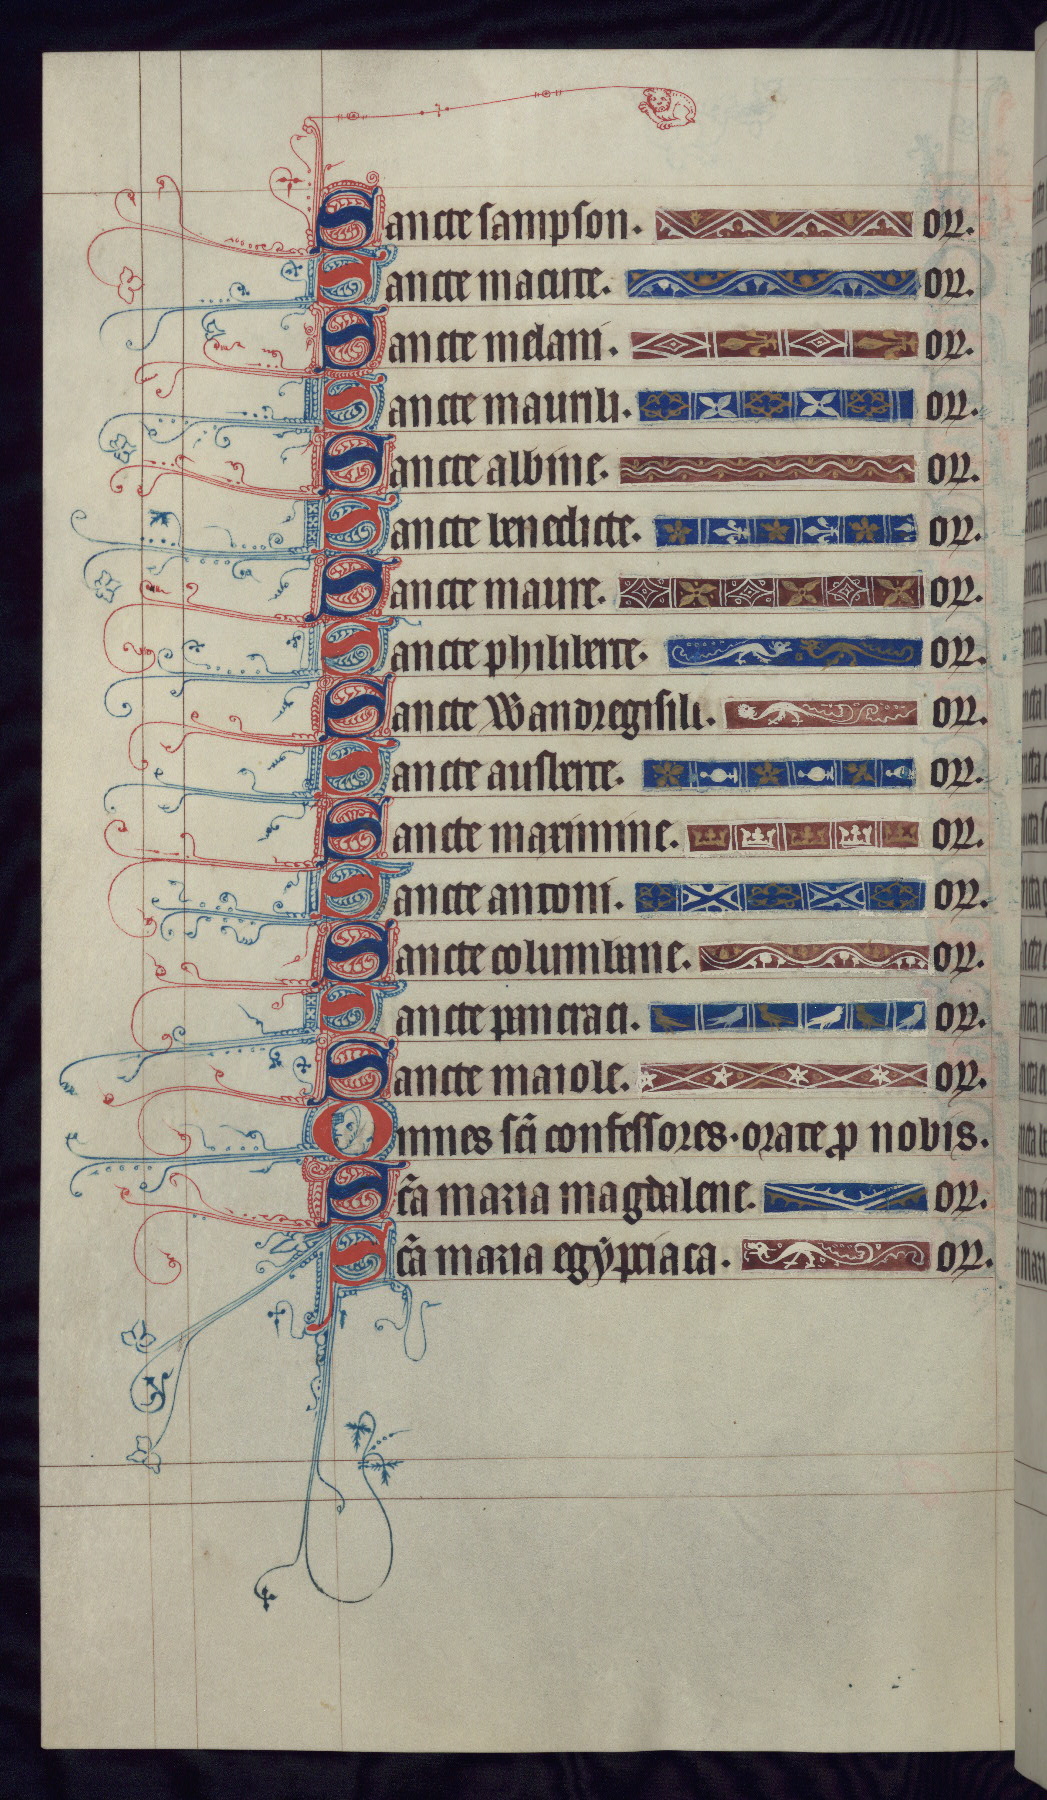 Sancte sampson. or.
Sancte macute. or.
Sancte melani. or.
Sancte maurili. or.
Sancte albine. or.
Sancte benedicte. or.
Sancte maure. or.
Sancte philiberte. or.
Sancte Wandregisili. or.
Sancte austerte. or.
Sancte maximine. or.
Sancte antoni. or.
Sancte columbane. or.
Sancte pancraci. or.
Sancte maiole. or.
Omnes sc̄i confessores. orate p nobis.
Sc̄a maria magdalene. or.
Sc̄a maria egyptiaca. or.